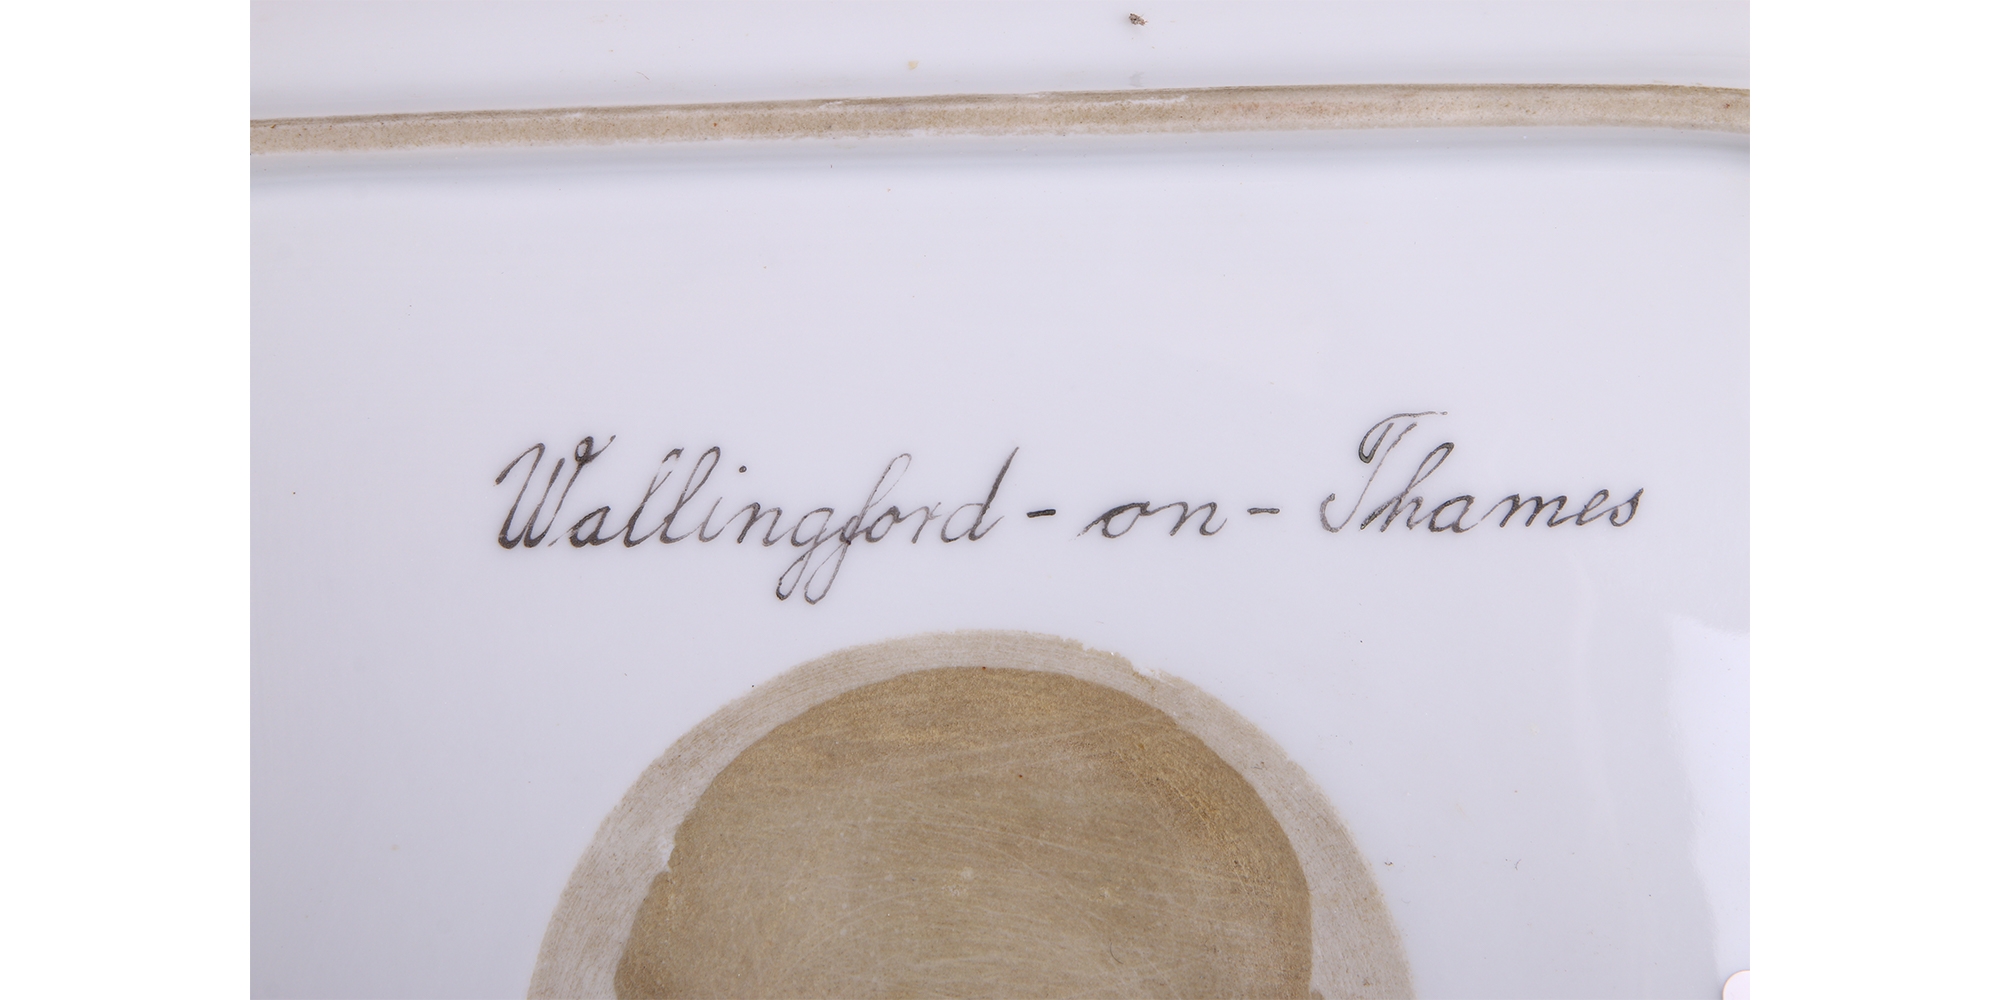 Wallingford - on - Thames